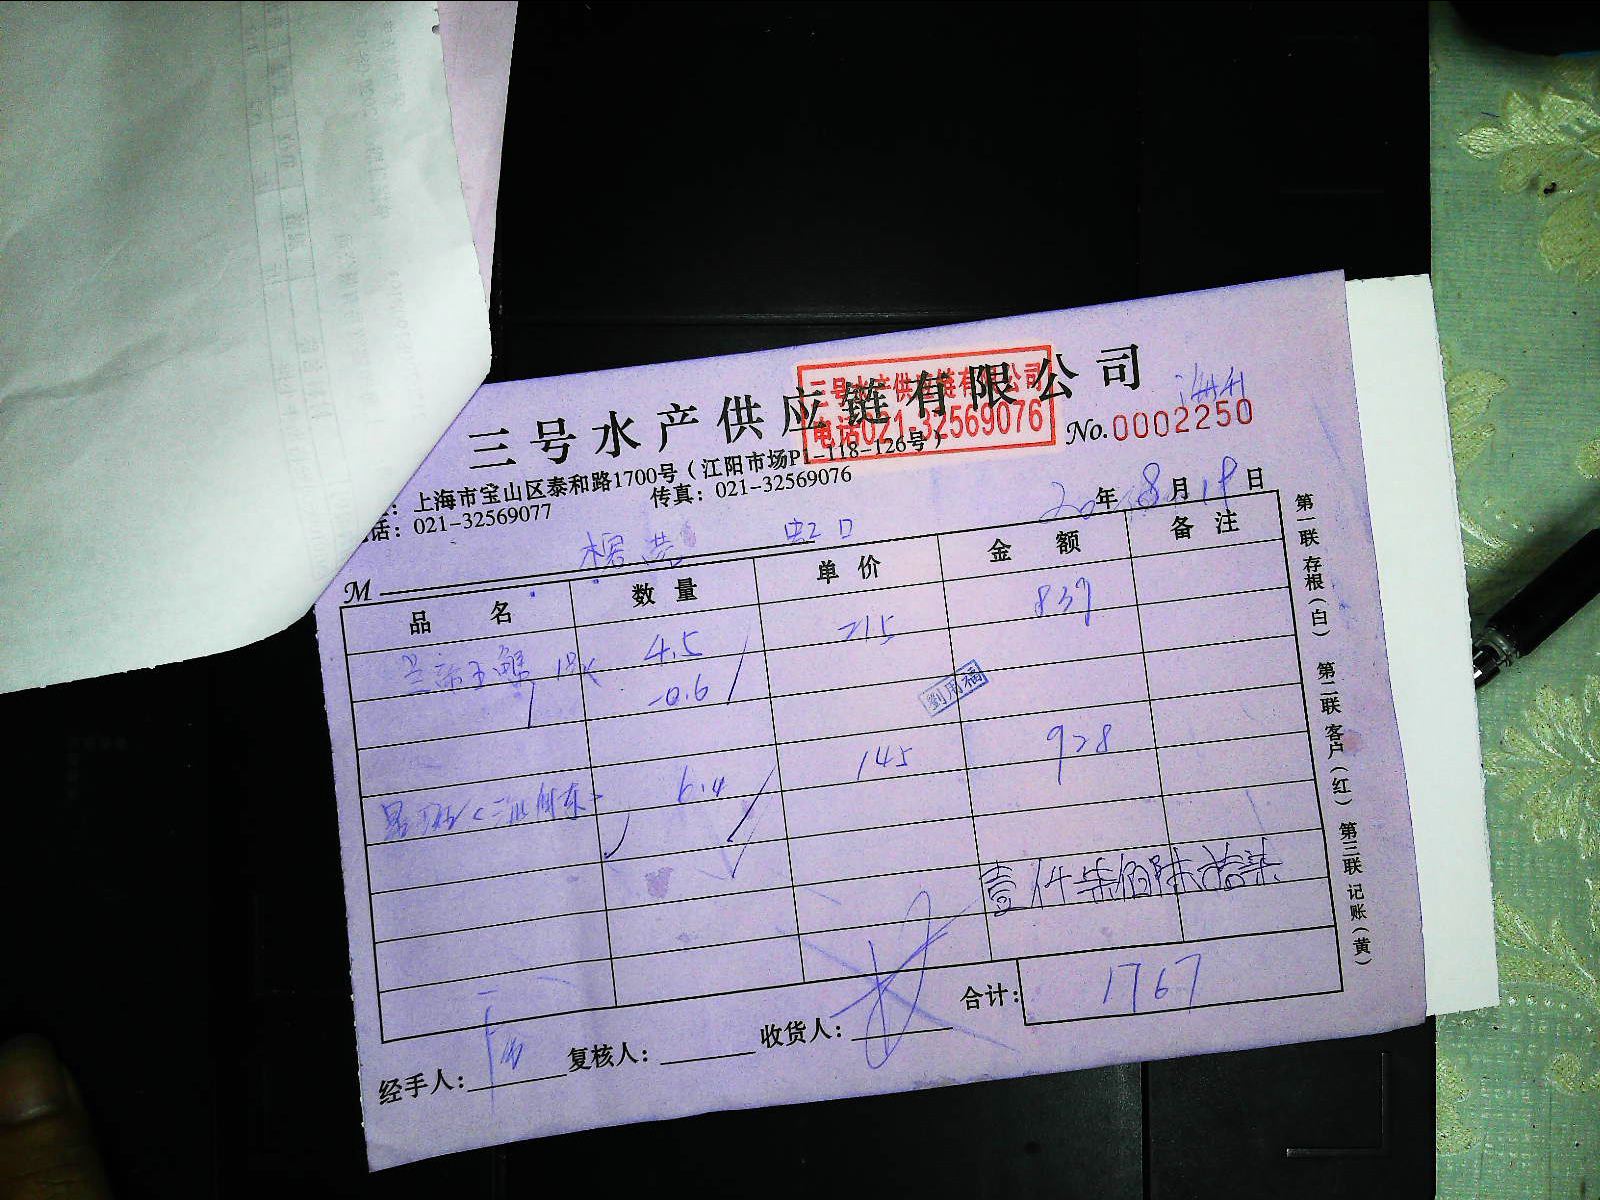 三号水产供应链有限公司
三号水产供应链有限公司
电话021-32569076
No.0002250
上海市宝山区泰和路1700号（江阳市场P1-118-126号）
话：021-32569077 传真：021-32569076
20 年 8 月 19 日
M 虹口
品名 数量 单价 金额 备注
4.5 215 837
-0.6
劉周福
6.4 145 928
壹仟柒佰陆拾柒
合计： 1767
经手人： 复核人： 收货人：
第一联 存根（白） 第二联 客户（红） 第三联 记账（黄）